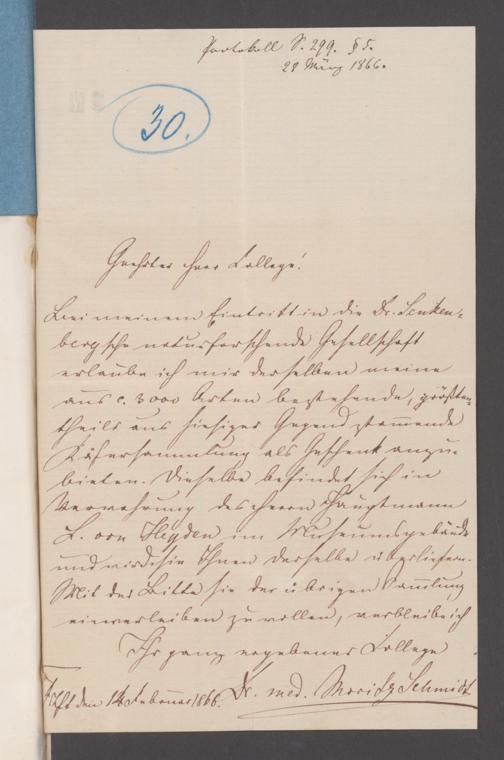 Protokoll S. 299. § 5.
28 März 1866.
30.
Geehrter Herr College!
Bei meinem Eintritt in die Dr. Senken-
bergsche naturforschende Gesellschaft
erlaube ich mir derselben meine
aus c. 3000 Arten bestehende, größten-
theils aus hiesiger Gegend stammende
Käfersammlung als Geschenk anzu-
bieten. Dieselbe befindet sich in
Verwahrung des Herrn Hauptmann
L. von Heyden im Museumsgebäude
und wird sie Ihnen derselbe überliefern.
Mit der Bitte sie der übrigen Sammlung
einverleiben zu wollen, verbleibe ich
Ihr ganz ergebener College
den 14 Februar 1866. Dr. med. Moritz Schmidt